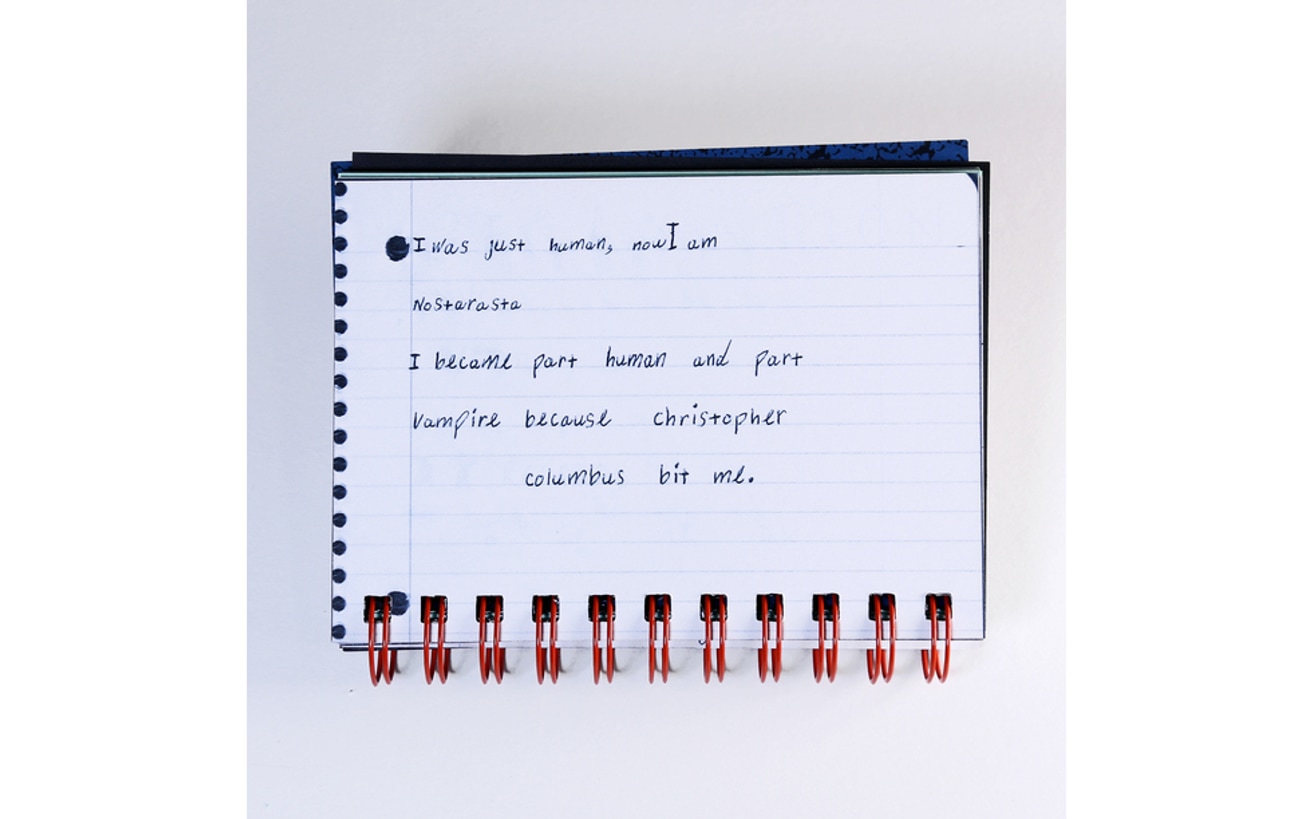 I was just human, now I am
Nostarasta
I became part human and part
Vampire because christopher
columbus bit me.